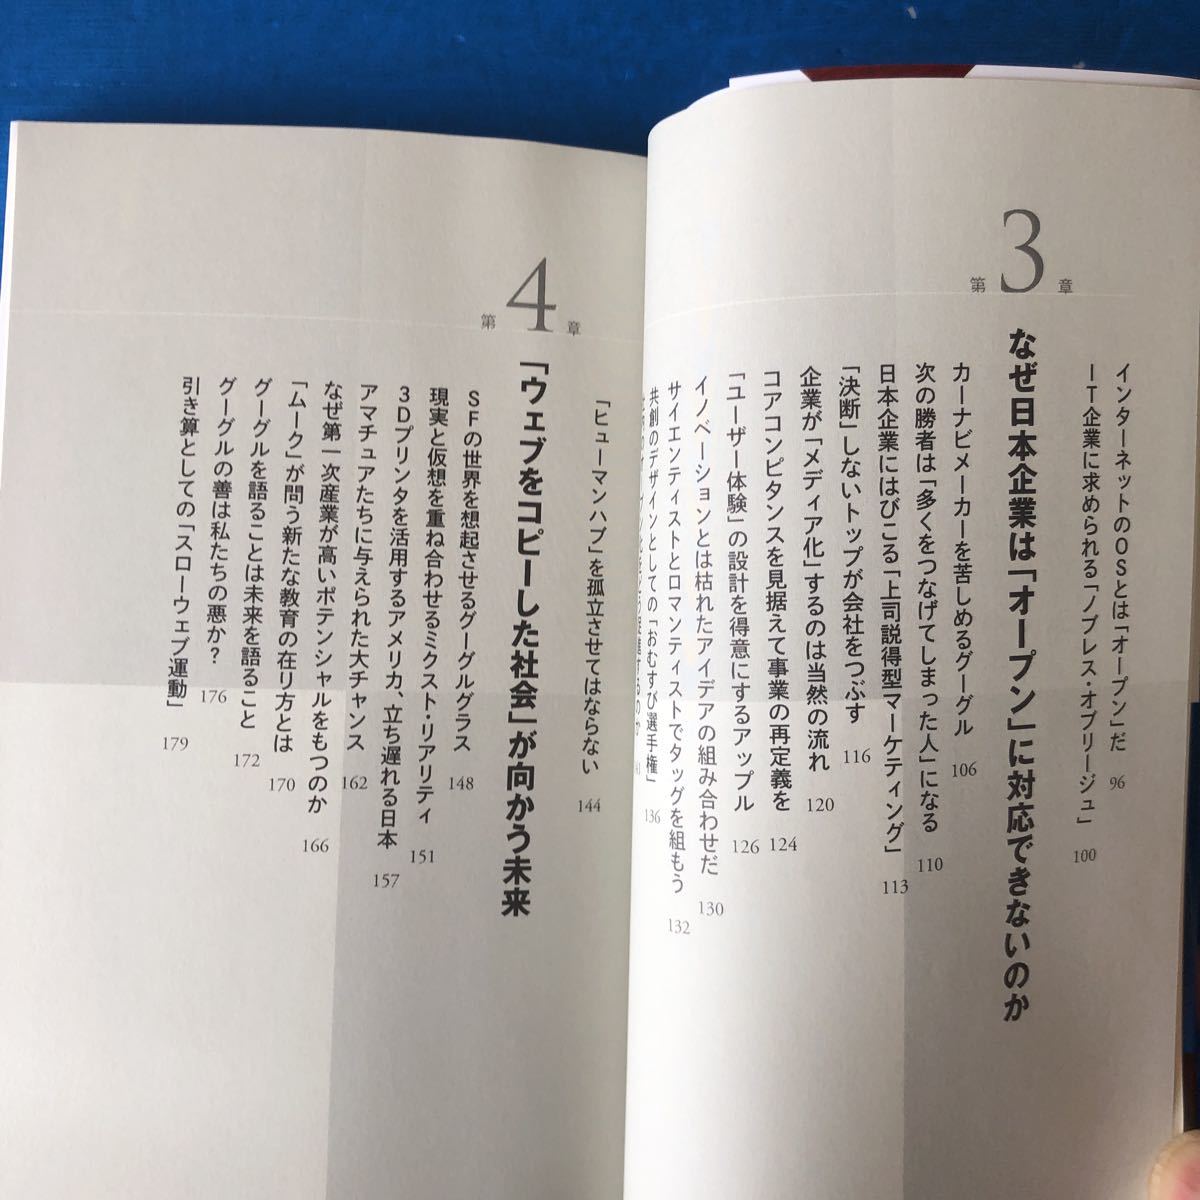 インターネットのOSとは「オープン」だ 96
IT企業に求められる「ノブレス・オブリージュ」 100
第3章 なぜ日本企業は「オープン」に対応できないのか
カーナビメーカーを苦しめるグーグル 106
次の勝者は「多くをつなげてしまった人」になる 110
日本企業にはびこる「上司説得型マーケティング」 113
「決断」しないトップが会社をつぶす 116
企業が「メディア化」するのは当然の流れ 120
コアコンピタンスを見据えて事業の再定義を 124
「ユーザー体験」の設計を得意にするアップル 126
イノベーションとは枯れたアイデアの組み合わせだ 130
サイエンティストとロマンティストでタッグを組もう 132
共創のデザインとしての「おむすび選手権」 136
「ヒューマンハブ」を孤立させてはならない 144
第4章 「ウェブをコピーした社会」が向かう未来
SFの世界を想起させるグーグルグラス 148
現実と仮想を重ね合わせるミクスト・リアリティ 151
3Dプリンタを活用するアメリカ、立ち遅れる日本 157
アマチュアたちに与えられた大チャンス 162
なぜ第一次産業が高いポテンシャルをもつのか 166
「ムーク」が問う新たな教育の在り方とは 170
グーグルを語ることは未来を語ること 172
グーグルの善は私たちの悪か? 176
引き算としての「スローウェブ運動」 179